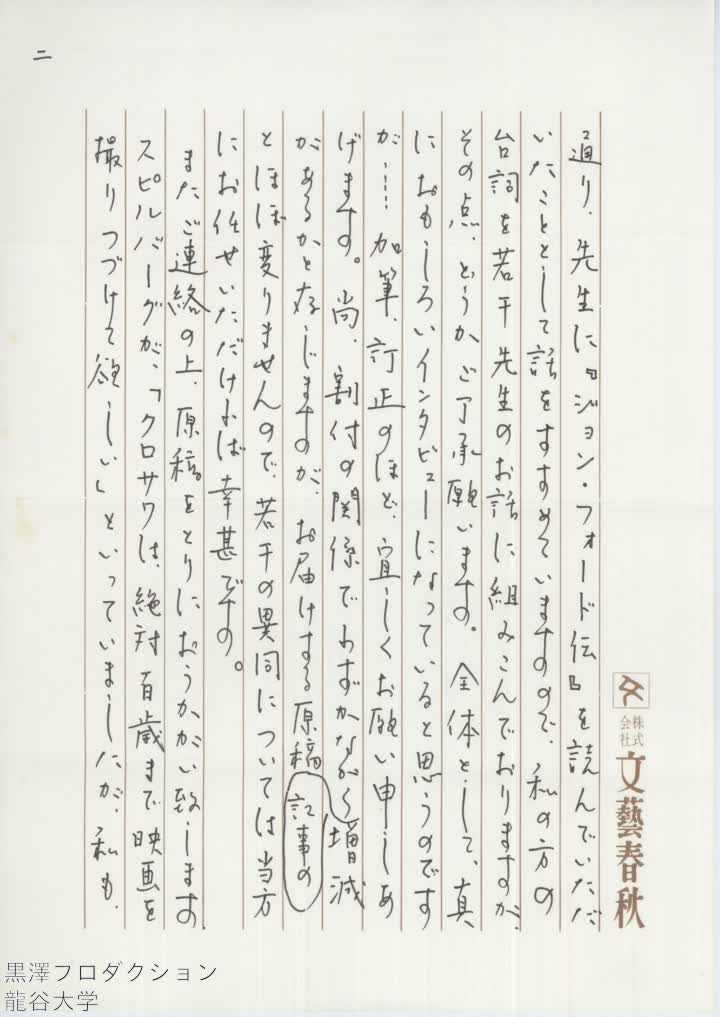 二
通り、先生に『ジョン・フォード伝』を読んでいただ
いたこととして話をすすめていますので、私の方の
台詞を若干先生のお話に組みこんでおりますが、
その点、どうかご了承願います。全体として、真
におもしろいインタビューになっていると思うのです
が……加筆、訂正のほど、宜しくお願い申しあ
げます。尚、割付の関係でわずかながら増減
があるかと存じますが、お届けする原稿
記事の
とほぼ変りませんので、若干の異同については当方
にお任せいただければ幸甚です。
またご連絡の上、原稿をとりにおうかがい致します。
スピルバーグが、「クロサワは、絶対百歳まで映画を
撮りつづけて欲しい」といっていましたが、私も、
株式会社 文藝春秋
黒澤プロダクション
龍谷大学